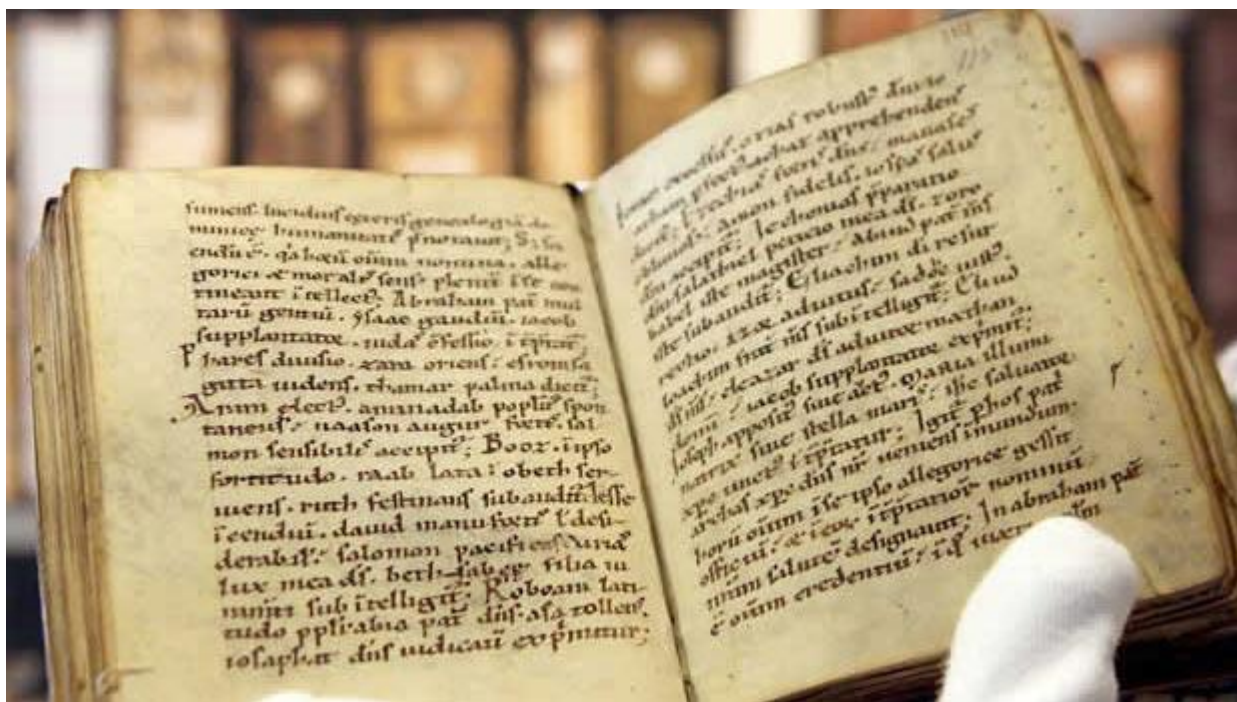 sumens. lucidius exercens genealogiã do
minicę humanitatis p̃notauit; S; sci
endũ ẽ. q̃a hoxũ oĩum nomina. alle
gorici & moralis sensus plenũ ĩ se con
tineant ĩtellectũ; Abraham pat̃ mul
tarũ gentiũ. ysaac gaudiũ. iacob
supplantator. iuda c̃fessio. ĩtp̃tat̃
Phares diuisio. zara oriens. esrom sa
gitta uidens. thamar palma dicit̃;
Aram elect. aminadab popl̃us spon
taneus. naason augur fortis. sal
mon sensibilis accipit̃; Booz. ĩ ipso
fortitudo. raab lata. obeth ser
uiens. ruth festinans subaudit̃. Iesse
ĩcendiũ. dauid manu fortis ł desi
derabilis. salomon pacificus. Vria
lux mea d̃s. beth sabee filia iu
ramti sub ĩtelligit̃; Roboam lati
tudo ppl̃i. abia pat̃ dñs. asa tollens.
iosaphat dñs iudicauit exp̃mitur;
115
ioram excelsus. ozias robustus dñi
ioatham pfectus achaz apprehendens
dicit̃; Ezechias fortis dñs. manases
oblitus. Amon fidelis. iosias salus
dñi accipit̃; Iechonias p̃paratio
dñi. salathiel peticio mea d̃s. zoro
babel iste magister. Abiud pat̃ m̃s
iste subaudit̃; Eliachim d̃i resur
rectio. azor adiutus. sadoc iustus.
ioachim frat̃ m̃s sub ĩtelligit̃; Eliud
d̃s m̃s. eleazar d̃s adiutor. mathan
donũ. iacob supplantator exp̃mit̃;
Ioseph appositus siue auct. Maria illumi
natrix siue stella maris. ih̃c saluator.
xp̃c unctus ĩtp̃tatur. Igit̃ p̃hos pat̃
archas xp̃c dñs nr̃ ueniens ĩ mundum.
horũ oĩum ĩ se ipso allegorice gessit
officiũ. & ĩ eor̃ ĩtp̃tatioñ nominũ
nr̃am salutẽ designauit; In abraham pat̃
ẽ oĩum credentiũ. iuxta